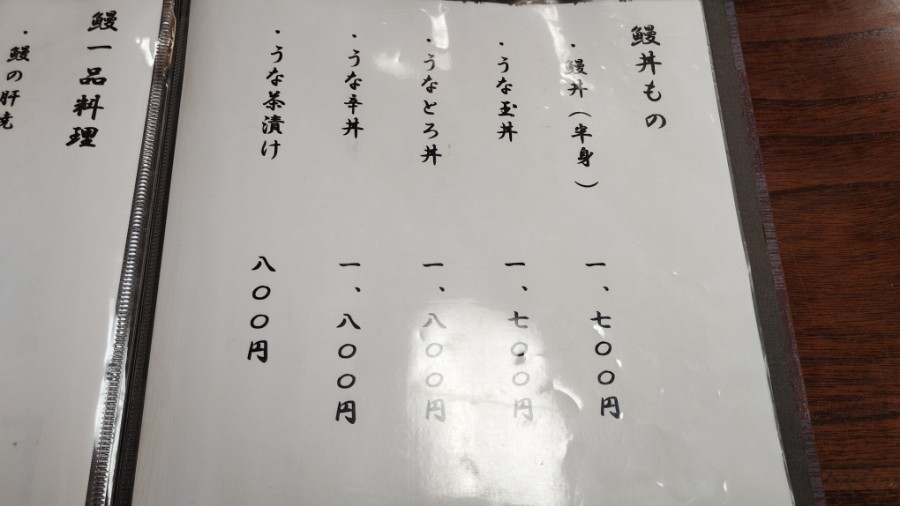 鰻丼もの
・鰻丼(半身) 一、七〇〇円
・うな玉丼 一、七〇〇円
・うなとろ丼 一、八〇〇円
・うな辛丼 一、八〇〇円
・うな茶漬け 八〇〇円
鰻一品料理
・鰻の肝焼